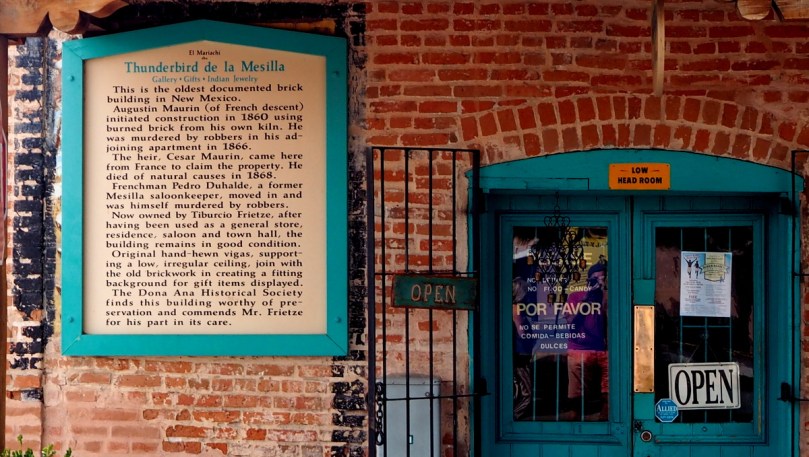 El Mariachi
dba
Thunderbird de la Mesilla
Gallery • Gifts • Indian Jewelry
This is the oldest documented brick
building in New Mexico.
Augustin Maurin (of French descent)
initiated construction in 1860 using
burned brick from his own kiln. He
was murdered by robbers in his ad-
joining apartment in 1866.
The heir, Cesar Maurin, came here
from France to claim the property. He
died of natural causes in 1868.
Frenchman Pedro Duhalde, a former
Mesilla saloonkeeper, moved in and
was himself murdered by robbers.
Now owned by Tiburcio Frietze, after
having been used as a general store,
residence, saloon and town hall, the
building remains in good condition.
Original hand-hewn vigas, support-
ing a low, irregular ceiling, join with
the old brickwork in creating a fitting
background for gift items displayed.
The Dona Ana Historical Society
finds this building worthy of pre-
servation and commends Mr. Frietze
for his part in its care.
OPEN
LOW
HEAD ROOM
NO FOOD-CANDY
POR FAVOR
NO SE PERMITE
COMIDA-BEBIDAS
DULCES
OPEN
ALLIED